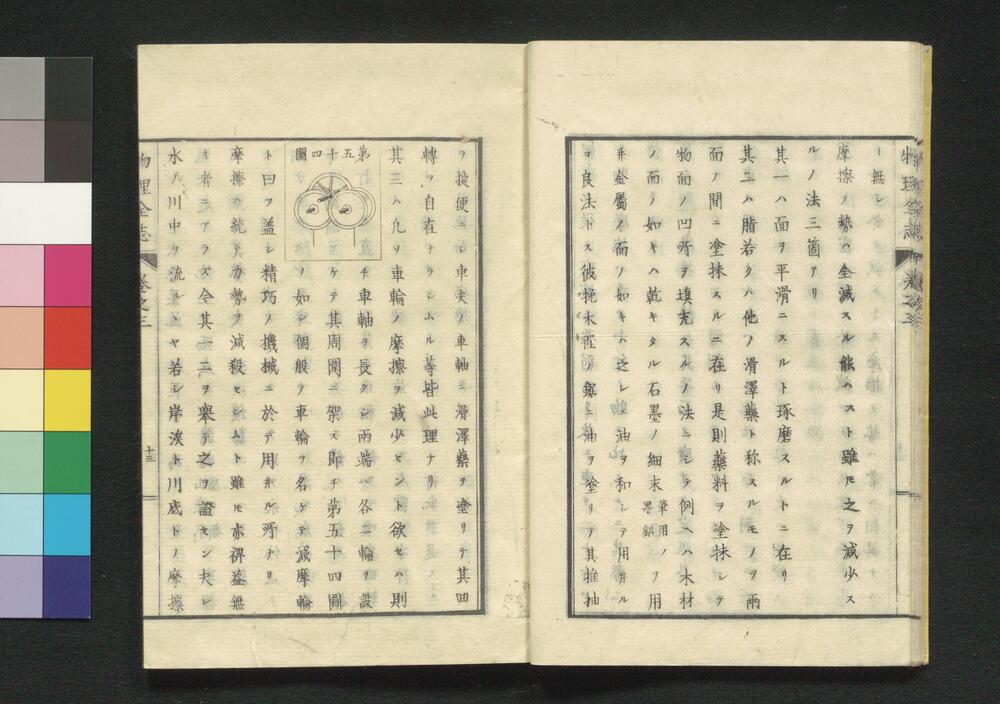 ー無シ
摩擦ノ勢ハ全滅スル能ハスト雖モ之ヲ減少ス
ルノ法三箇アリ
其一ハ面ヲ平滑ニスルト琢磨スルトニ在リ
其二ハ脂若クハ他ノ滑澤藥ト称スルモノヲ兩
面ノ間ニ塗抹スルニ在リ是則藥料ヲ塗抹シテ
物面ノ凹所ヲ填充スルノ法ニシテ例ヘハ木材
ノ面ノ如キハ乾キタル石墨ノ細末筆用ノ墨鉛ヲ用
井金屬ノ面ノ如キハ之レニ油ヲ和シテ用井ル
ヲ良法トス彼挽木匠ノ鋸ニ油ヲ塗リテ其推抽
ヲ捷便ニシ車夫ノ車軸ニ滑澤藥ヲ塗リテ其回
轉ヲ自在ナラシムル等皆此理ナリ
其三ハ凡ソ車輪ノ摩擦ヲ減少セント欲セハ則
チ車軸ヲ長クシ兩端ヘ各二輪ヲ設
ケテ其周圍ニ架ス即チ第五十四圖
ノ如シ個般ノ車輪ヲ名ケテ減摩輪
第五十四圖
ト曰フ蓋シ精巧ノ機械ニ於テ用井ル所ナリ
摩擦ハ統テ力勢ヲ減殺セシムト雖モ亦裨益無
キ者ニアラス今其一二ヲ擧テ之ヲ證セン夫レ
水ノ川中ヲ流ルヽヤ若シ岸涘ト川底トノ摩擦
物理全志
卷之三
十三